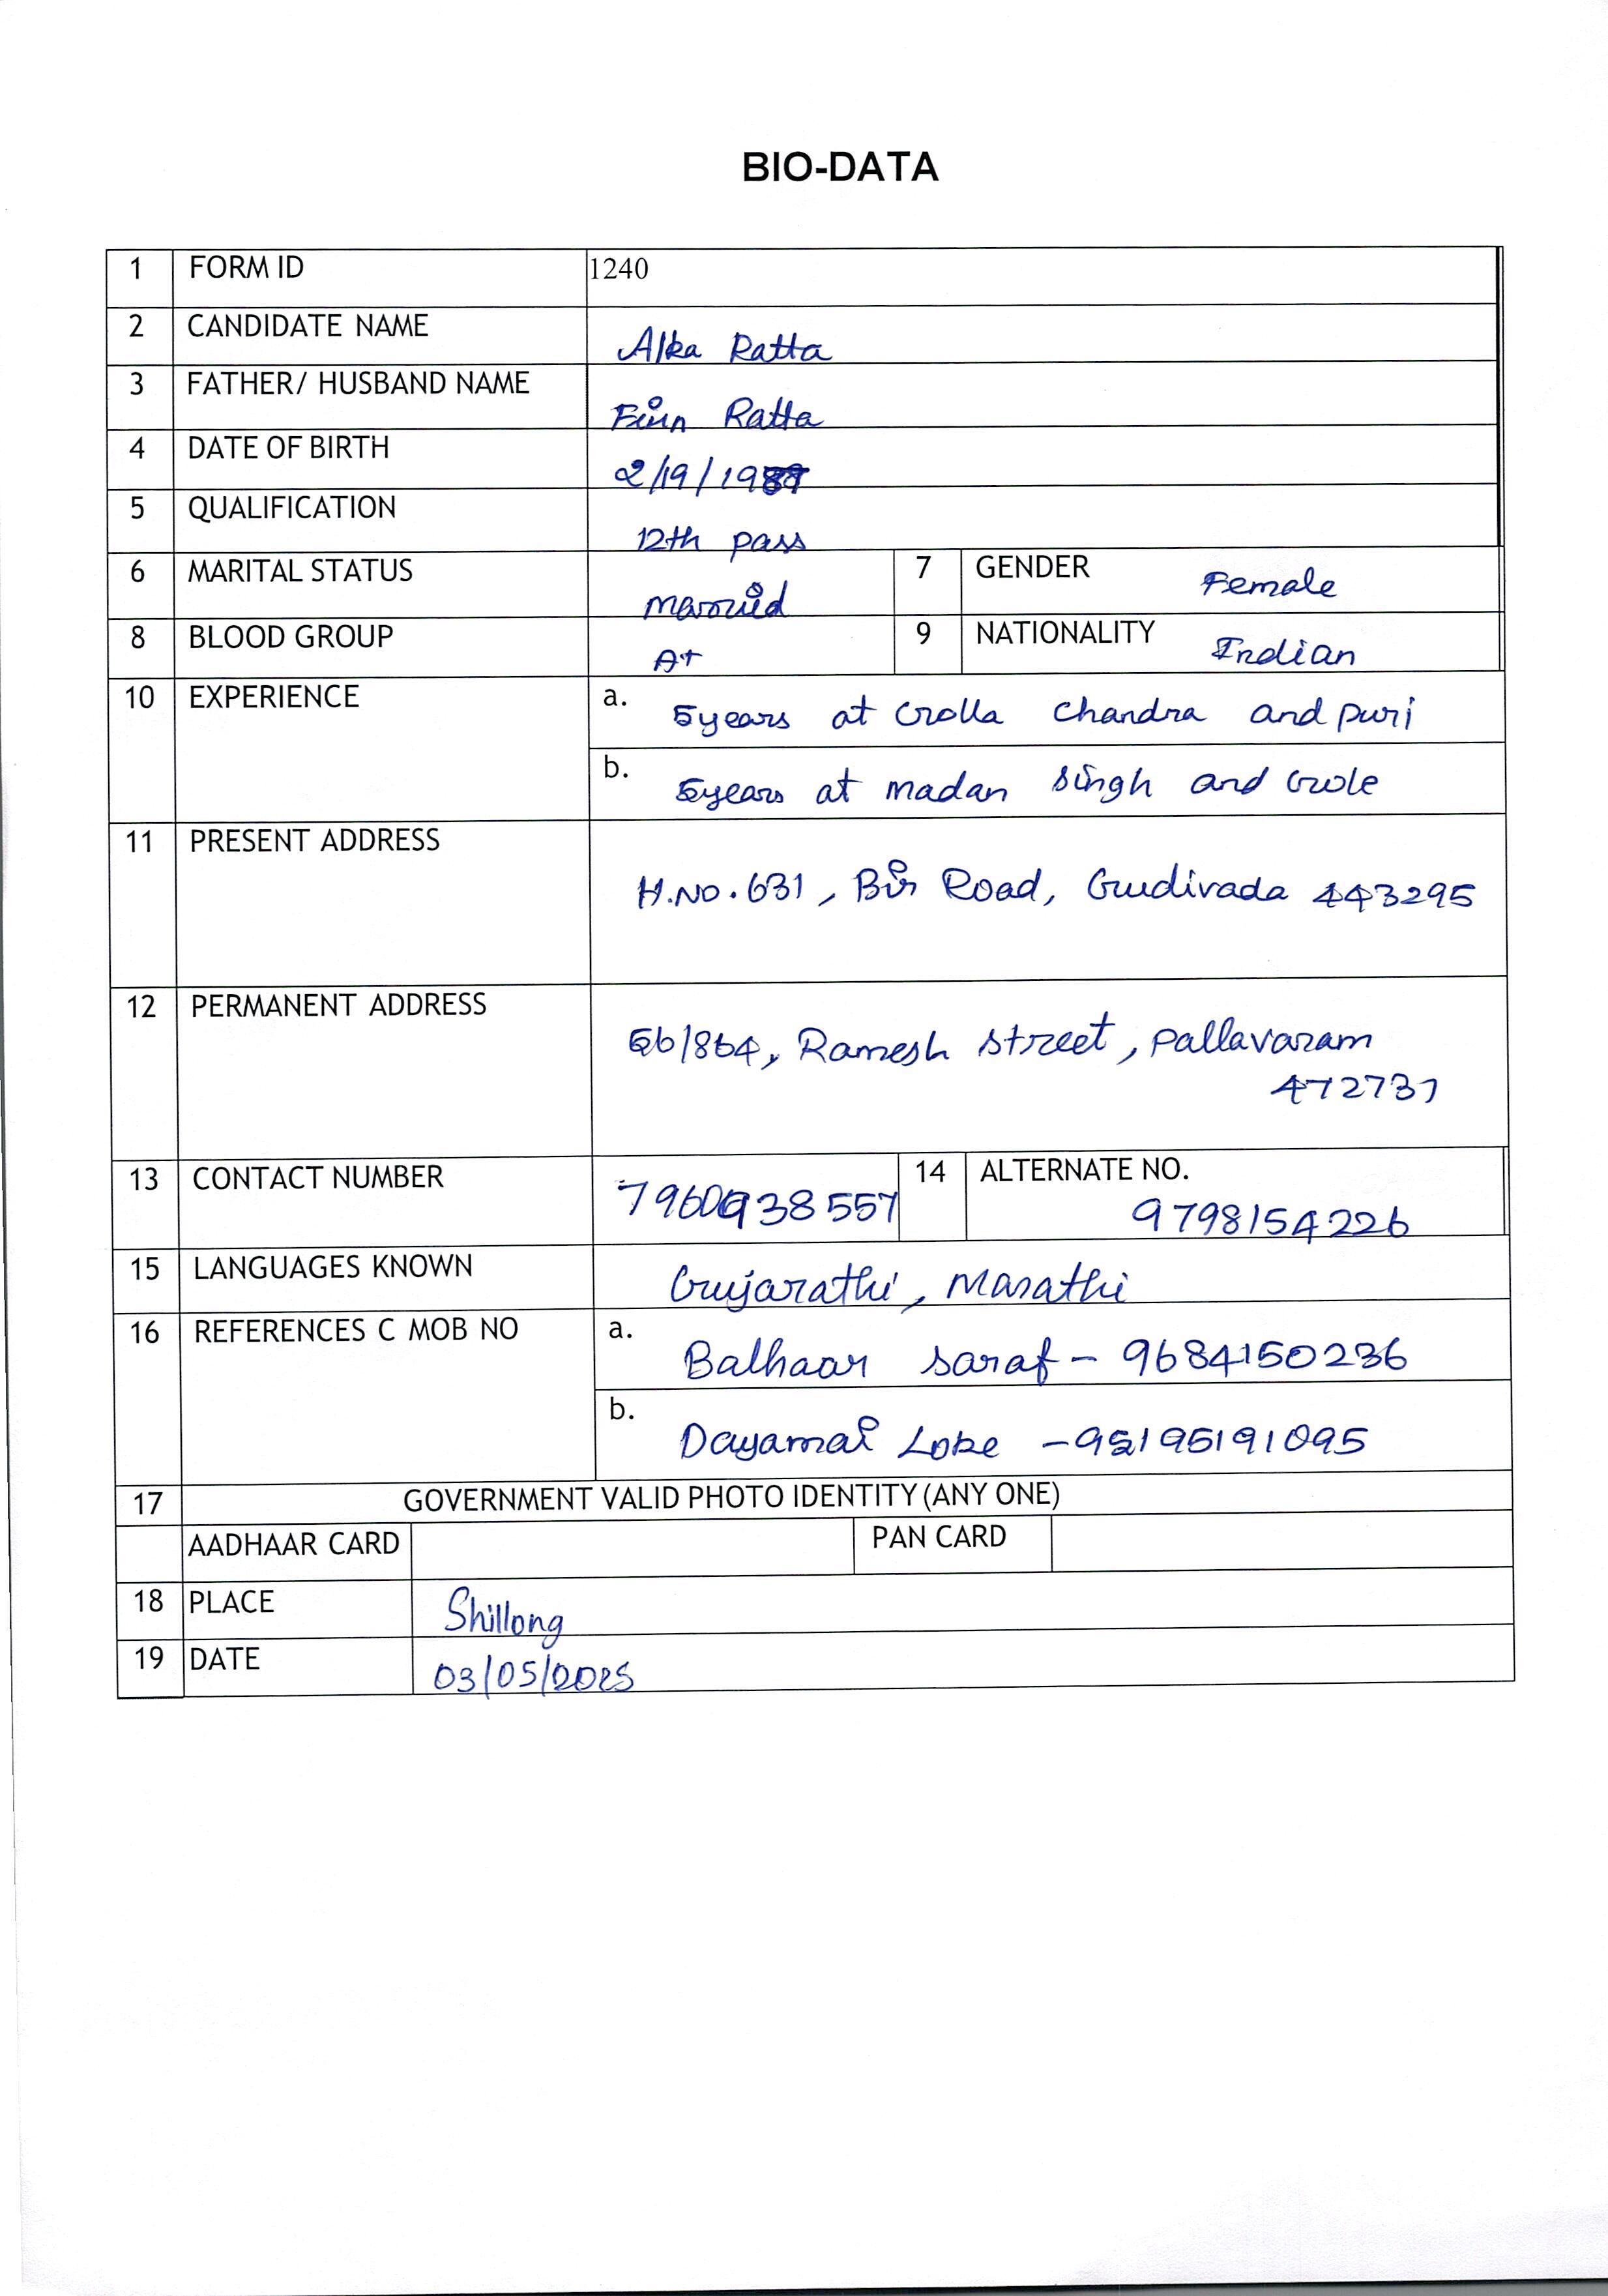 BIO-DATA
1 FORM ID 1240
2 CANDIDATE NAME Alka Ratta
3 FATHER/ HUSBAND NAME Ratta
4 DATE OF BIRTH 2/19/1987
5 QUALIFICATION 12th pass
6 MARITAL STATUS Married 7 GENDER Female
8 BLOOD GROUP A+ 9 NATIONALITY Indian
10 EXPERIENCE a. 5years at Golla Chandra and puri
b. 5years at madan singh and Gole
11 PRESENT ADDRESS
H.No.631, Bir Road, Gudivada 443295
12 PERMANENT ADDRESS
56/864, Ramesh street, pallavaram
472731
13 CONTACT NUMBER 7960938557 14 ALTERNATE NO.
9798154226
15 LANGUAGES KNOWN Gujarathi, Marathi
16 REFERENCES C MOB NO a. Balhaar saraf - 9684150236
b. Dayamai Loke - 95195191095
17 GOVERNMENT VALID PHOTO IDENTITY (ANY ONE)
AADHAAR CARD PAN CARD
18 PLACE Shillong
19 DATE 03/05/2025